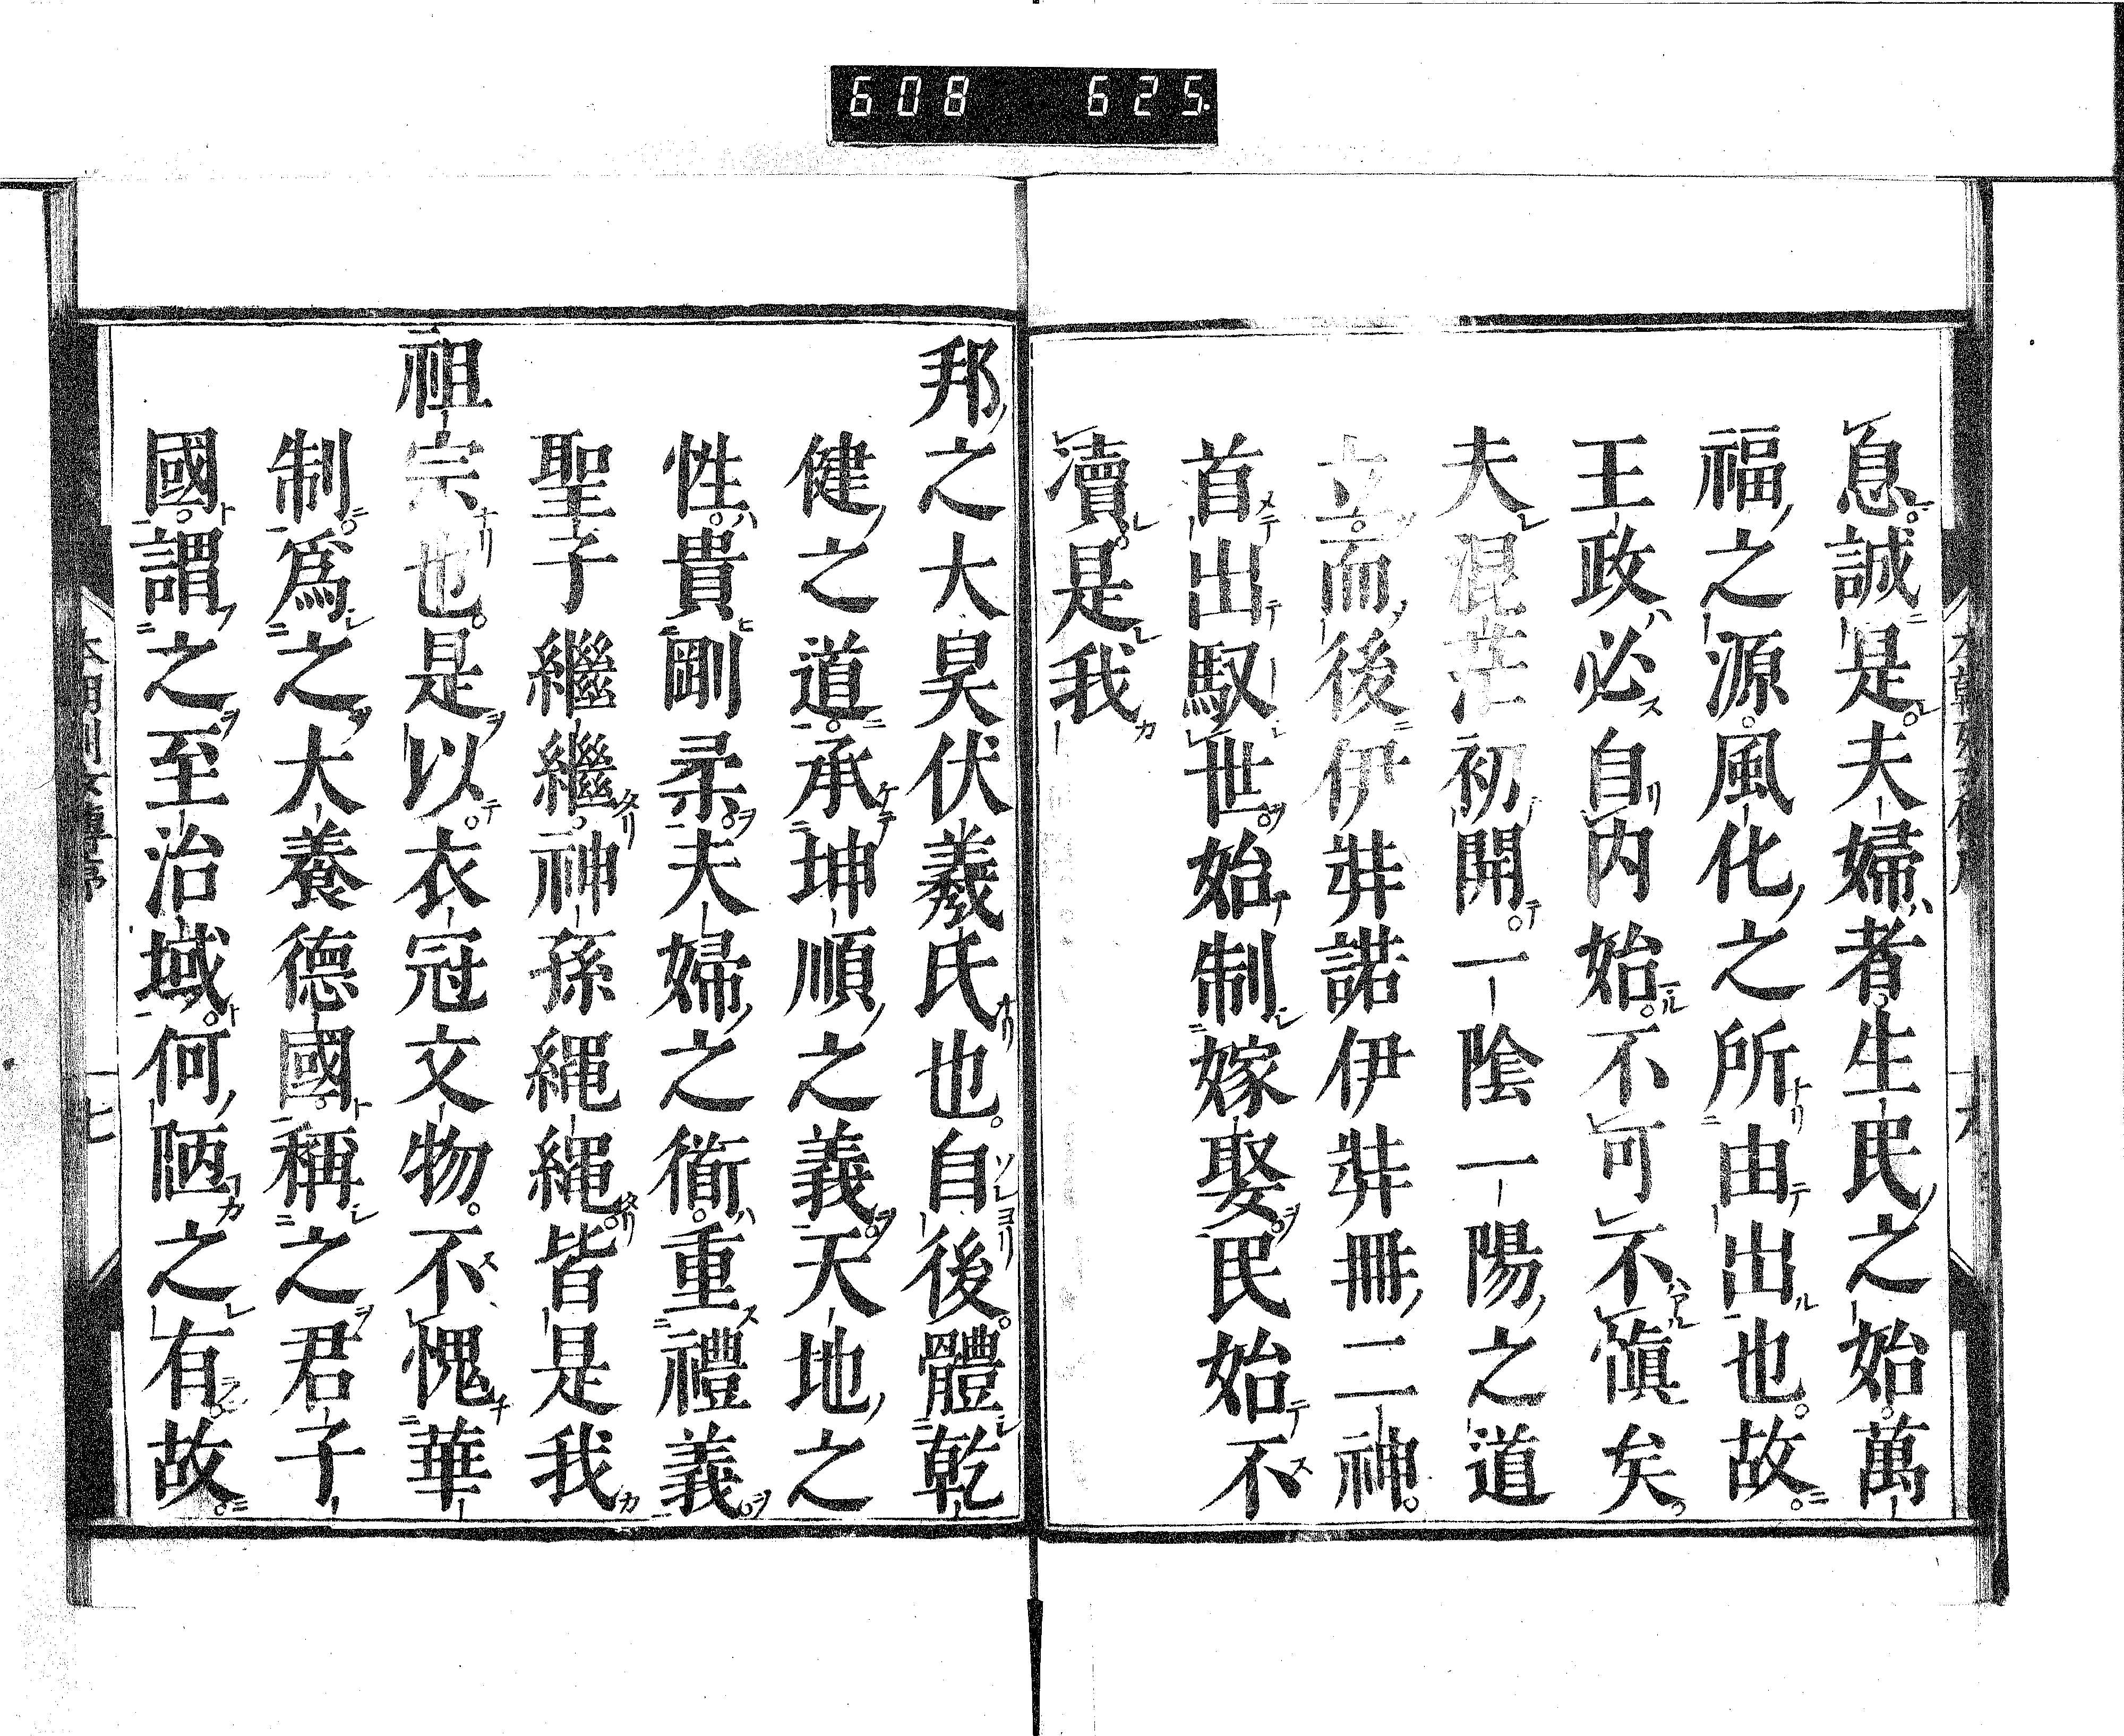 608 625
息誠是夫婦者生民之始萬
福之源風化之所由出也故
王政必自内始不可不愼矣
夫混茫初開一陰一陽之道
立而後伊弉諾伊弉冊二神
首出馭世始制嫁娶民始不
瀆是我
邦之大昊伏羲氏也自後體乾
健之道承坤順之義天地之
性貴剛柔夫婦之衜重禮義
聖子繼繼神孫繩繩皆是我
祖宗也是以衣冠文物不愧華
制爲之大養德國稱之君子
國謂之至治域何陋之有故